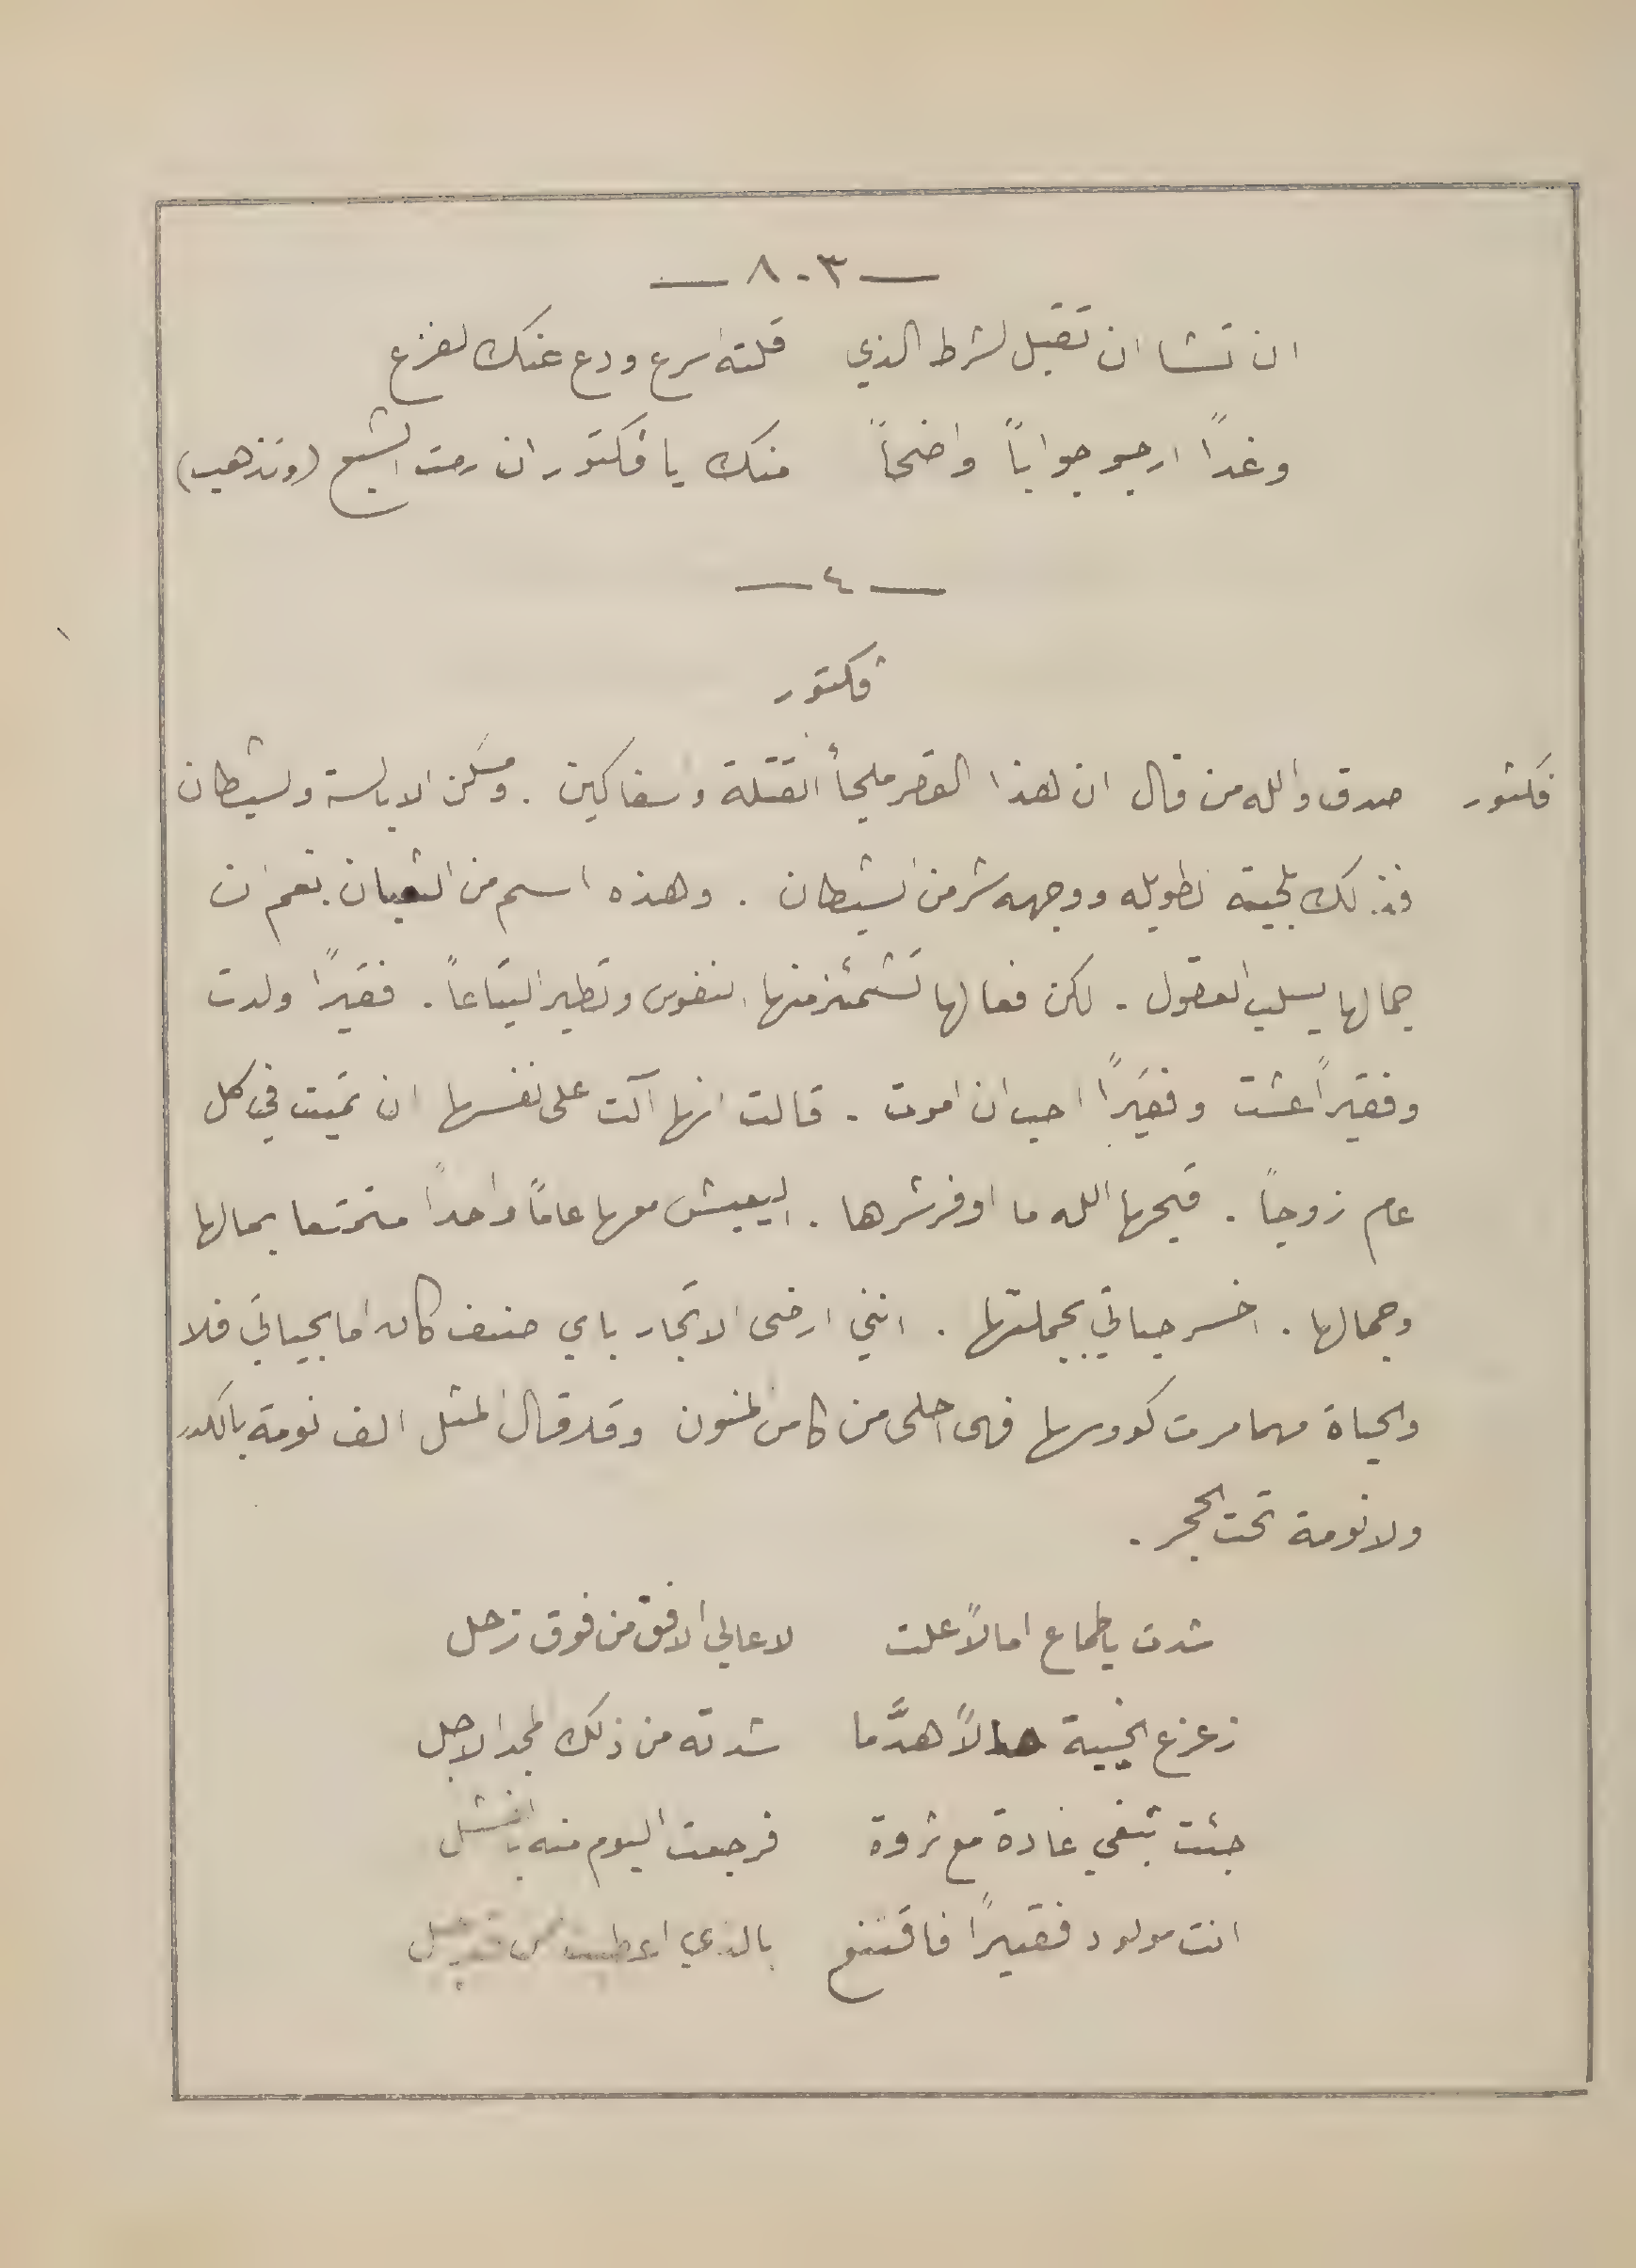 — ٨٠٣ —
ان تشا ان تقبل الشرط الذي قلته اسرع ودع عنك الفزع
وغداً ارجو جواباً واضحاً منك يا فكتور ان رمت الشبع (وتذهب)
— ٤ —
فكتور
فكتور صدق والله من قال ان هذا القصر ملجأ القتلة والسفاكين . ومسكن الابالسة والشيطان
فذلك بلحيته الطويله ووجهه شر من الشيطان . وهذه اسم من الثعبان . نعم ان
جمالها يسلب العقول . لكن فعالها تشمئز منها النفوس وتطير التياعاً . فقيراً ولدت
وفقيراً عشت وفقيراً احب ان اموت . قالت انها آلت على نفسها ان تميت في كل
عام زوجاً . قبحها الله ما اوفر شرها . ايعيش معها عاماً واحداً متمتعا بمالها
وجمالها . اخسر حياتي بجملتها . انني ارضى الاتجار باي صنف كان اما بحياتي فلا
والحياة مهما مرت كووسها فهى احلى من كاس المنون وقد قال المثل الف نومة بالكدر
ولا نومة تحت الحجر .
شدت ياطماع امالاً علت لاعالي الافق من فوق زحل
زعزع الخيبة هالاً هدَّما شدته من ذلك المجد الاجل
جئت تبغي غادة مع ثروة فرجعت اليوم منه بالفشل
انت مولود فقيراً فاقتنع بالذي اعطيت من